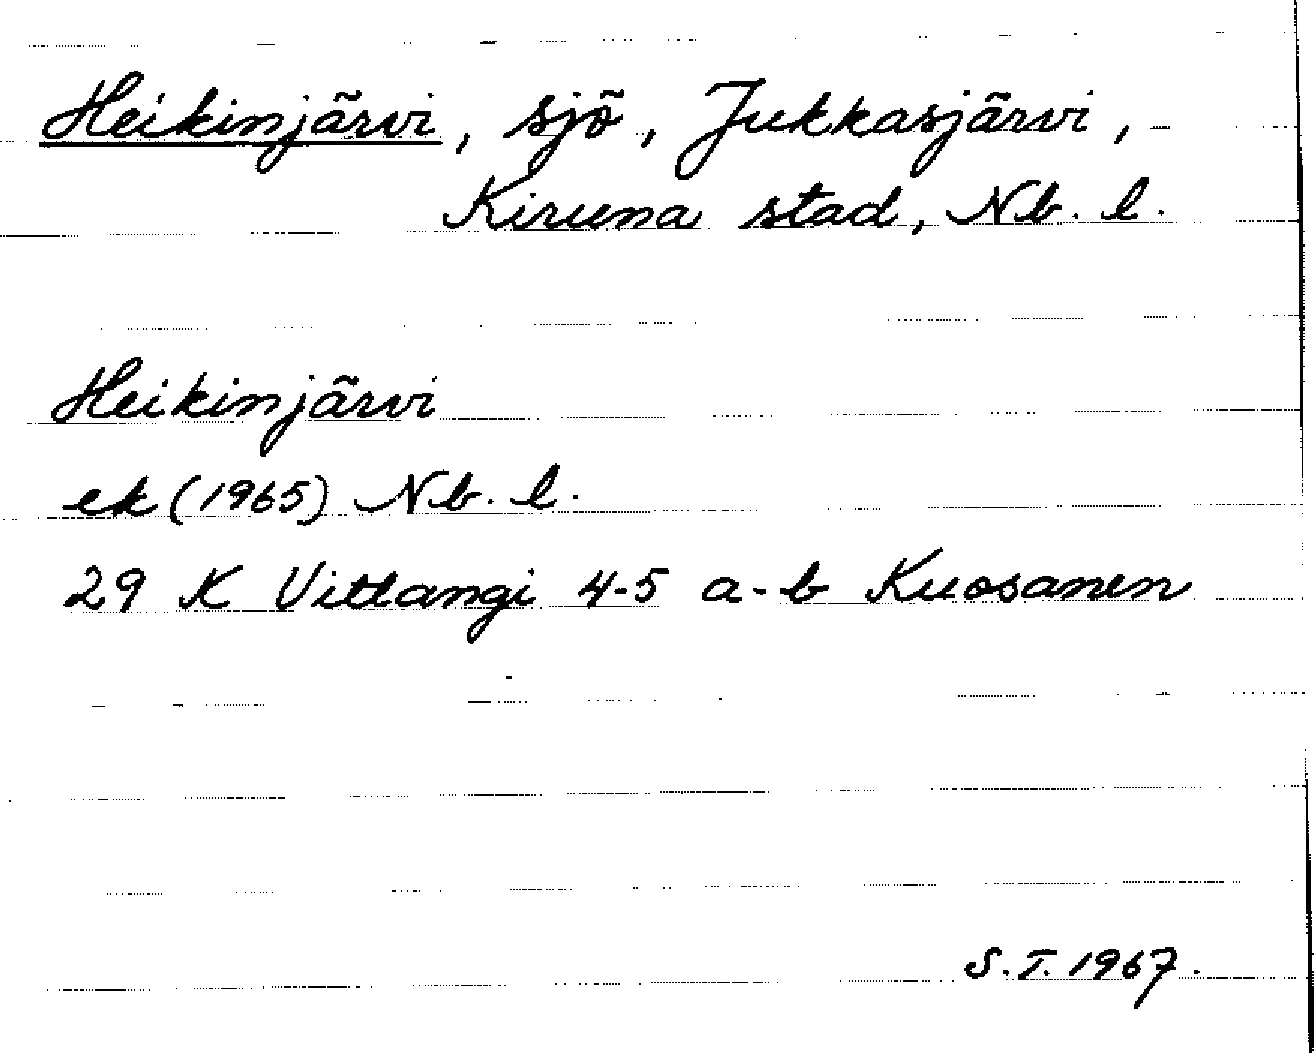 Heikinjärvi, sjö, Jukkasjärvi,
Kiruna stad, Nb. l.
Heikinjärvi
ek (1965) Nb. l.
29 K Vittangi 4-5 a-b Kuosanen
S.T. 1967.